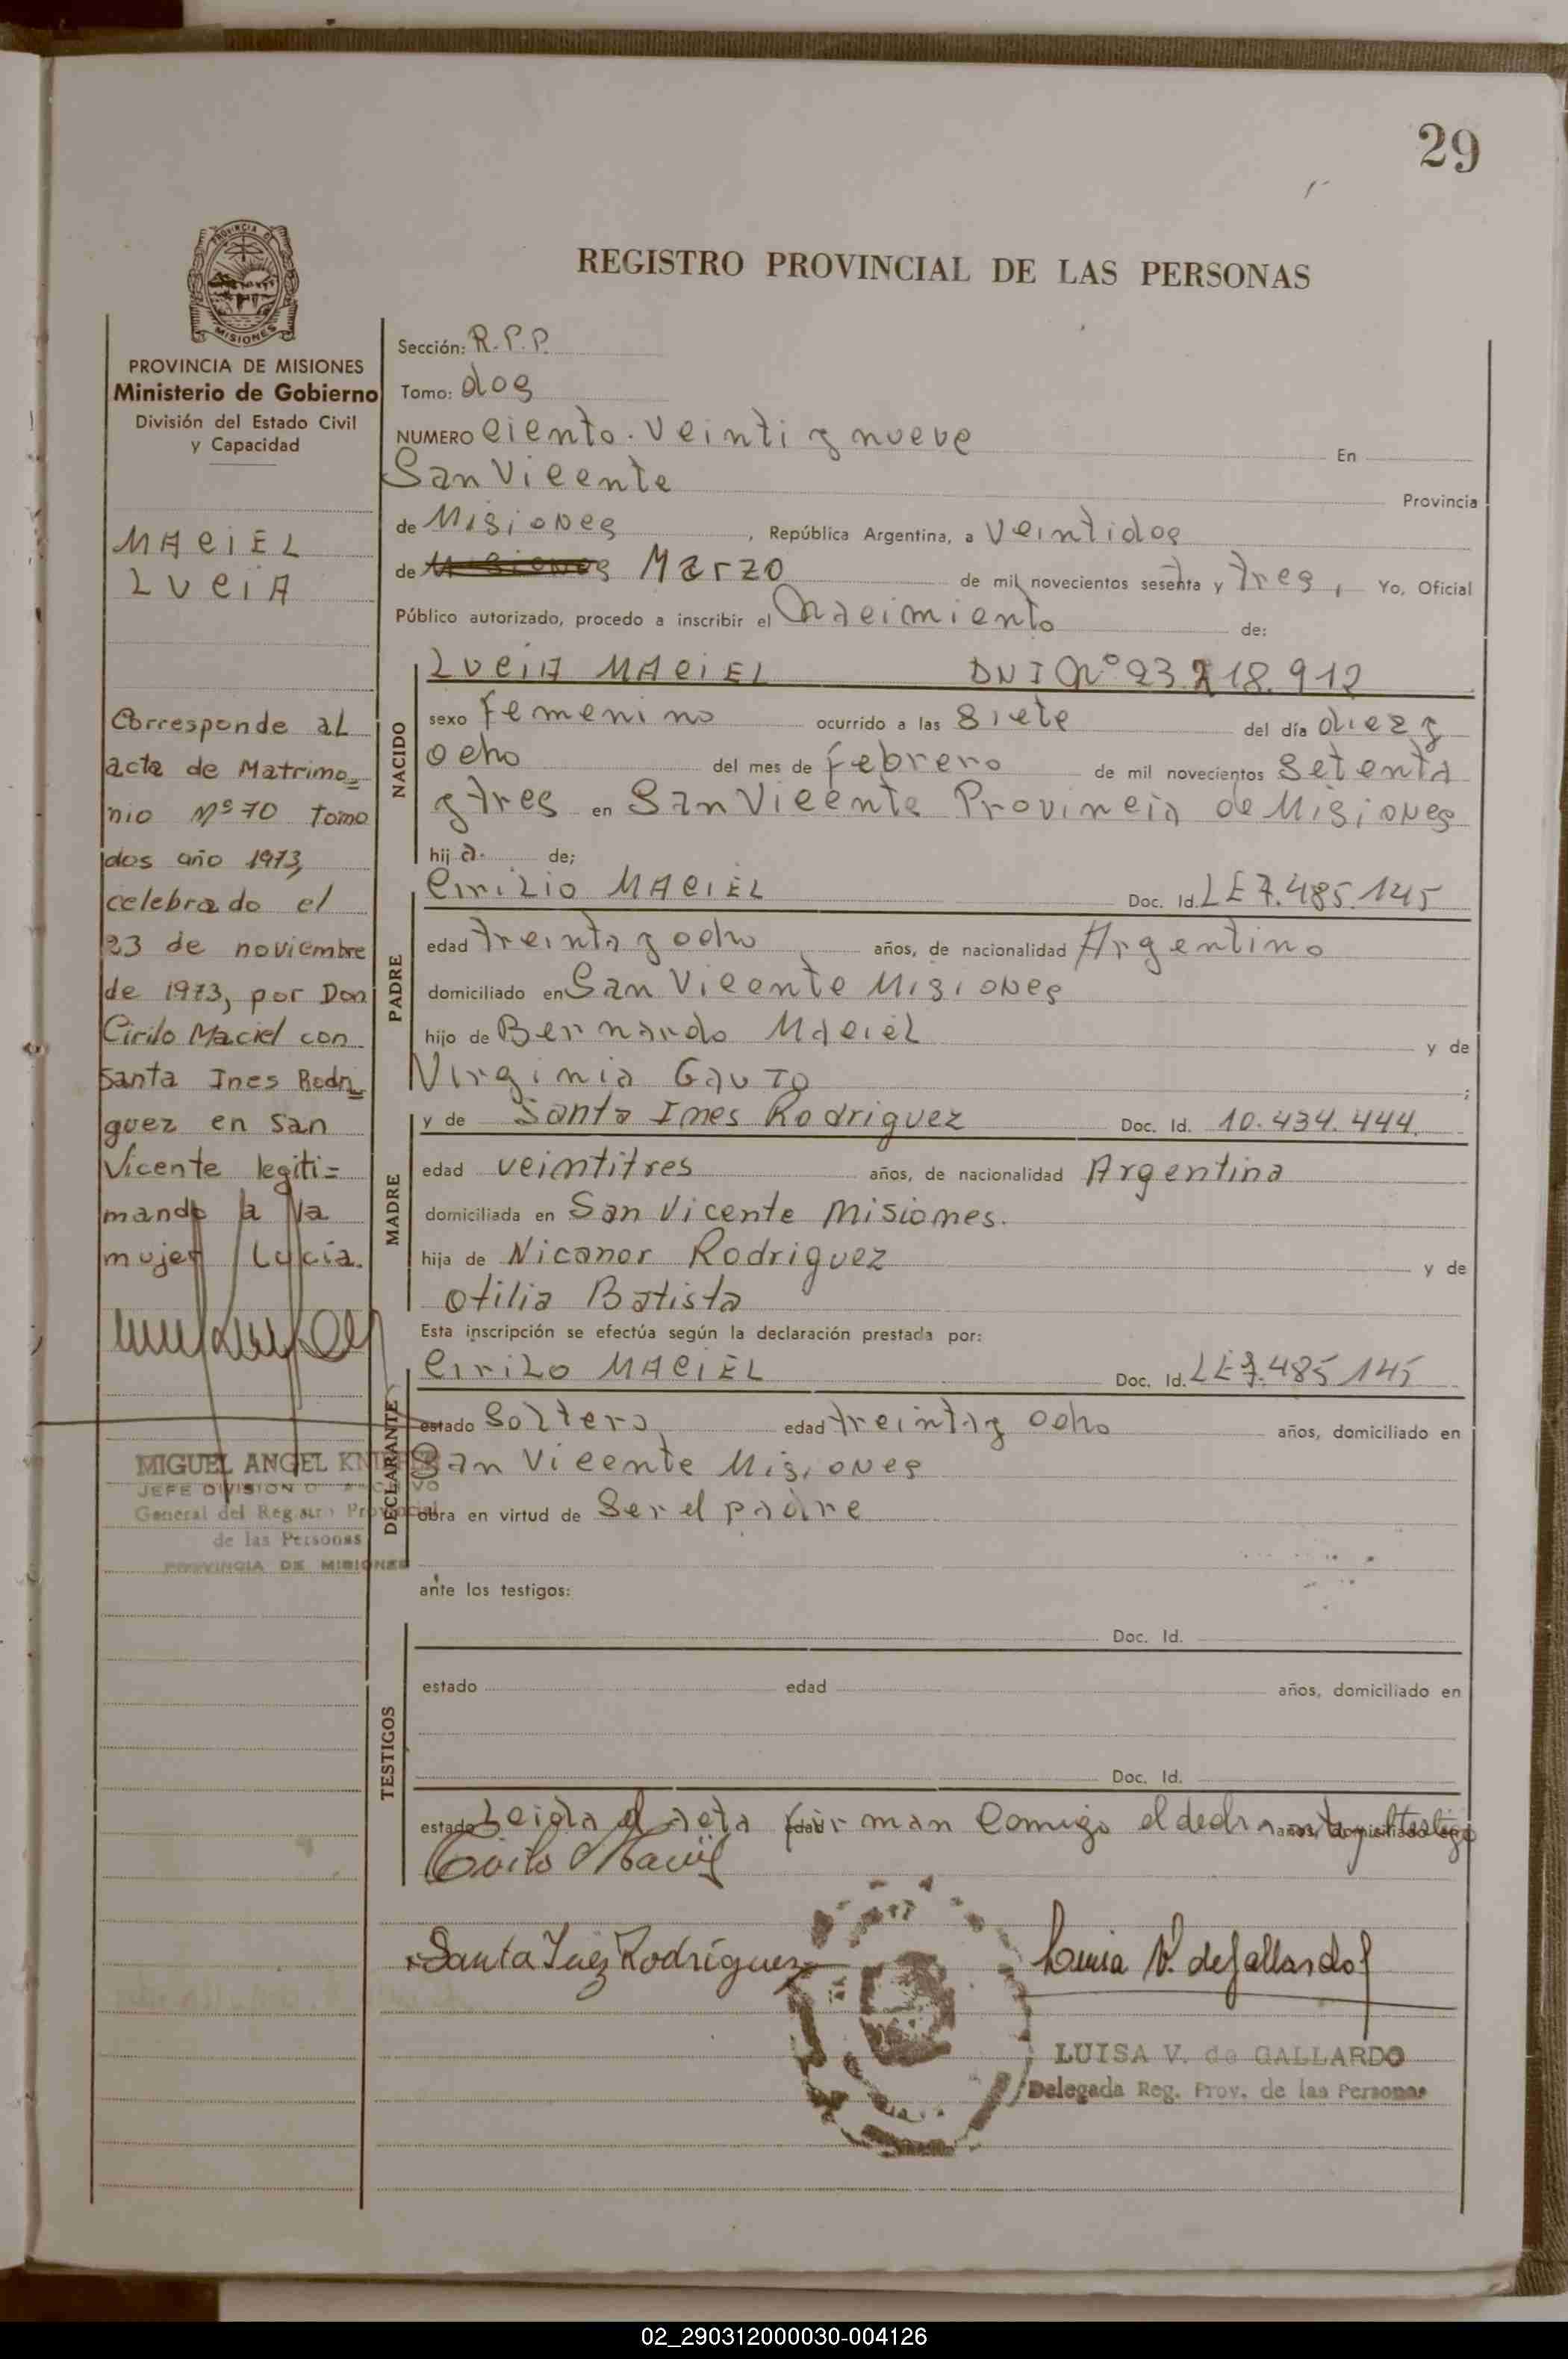 29
REGISTRO PROVINCIAL DE LAS PERSONAS
PROVINCIA DE MISIONES
Ministerio de Gobierno
División del Estado Civil
y Capacidad
MACIEL
LUCIA
Corresponde al
acta de Matrimo=
nio Nº 70 Tomo
dos año 1973,
celebrado el
23 de noviembre
de 1973, por Don
Cirilo Maciel con
Santa Ines Rodri=
guez en San
Vicente legiti=
mando a la
mujer Lucia.
MIGUEL ANGEL
JEFE DIVISION
General del Registro Provincial
de las Personas
PROVINCIA DE MISIONES
Sección: R.P.P.
Tomo: dos
NUMERO Ciento. Veinti y nueve En
San Vicente Provincia
de Misiones, República Argentina, a Veintidos
de Misiones Marzo de mil novecientos sesenta y tres, Yo, Oficial
Público autorizado, procedo a inscribir el Nacimiento de:
NACIDO
LUCIA MACIEL DNI Nº 23.218.912
sexo femenino ocurrido a las Siete del día diez y
ocho del mes de febrero de mil novecientos Setenta
y tres en San Vicente Provincia de Misiones
hij a. de;
PADRE
Cirilio MACIEL Doc. Id. LE 7.485.145
edad treinta y ocho años, de nacionalidad Argentino
domiciliado en San Vicente Misiones
hijo de Bernardo Maciel y de
Virginia Gauto ;
MADRE
y de Santa Ines Rodriguez Doc. Id. 10.434.444.
edad veintitres años, de nacionalidad Argentina
domiciliada en San Vicente Misiones.
hija de Nicanor Rodriguez y de
Otilia Batista
Esta inscripción se efectúa según la declaración prestada por:
DECLARANTE
Cirilo MACIEL Doc. Id. LE 7.485.145
estado Soltero edad treinta y ocho años, domiciliado en
San Vicente Misiones
obra en virtud de Ser el padre
ante los testigos:
TESTIGOS
Doc. Id.
estado edad años, domiciliado en
Doc. Id.
estado Leida el acta edad firman Comigo el años, domiciliado en
Cirilo Maciel
Santa Inez Rodríguez
Luisa V. de Gallardo
LUISA V. de GALLARDO
Delegada Reg. Prov. de las Personas
02_290312000030-004126